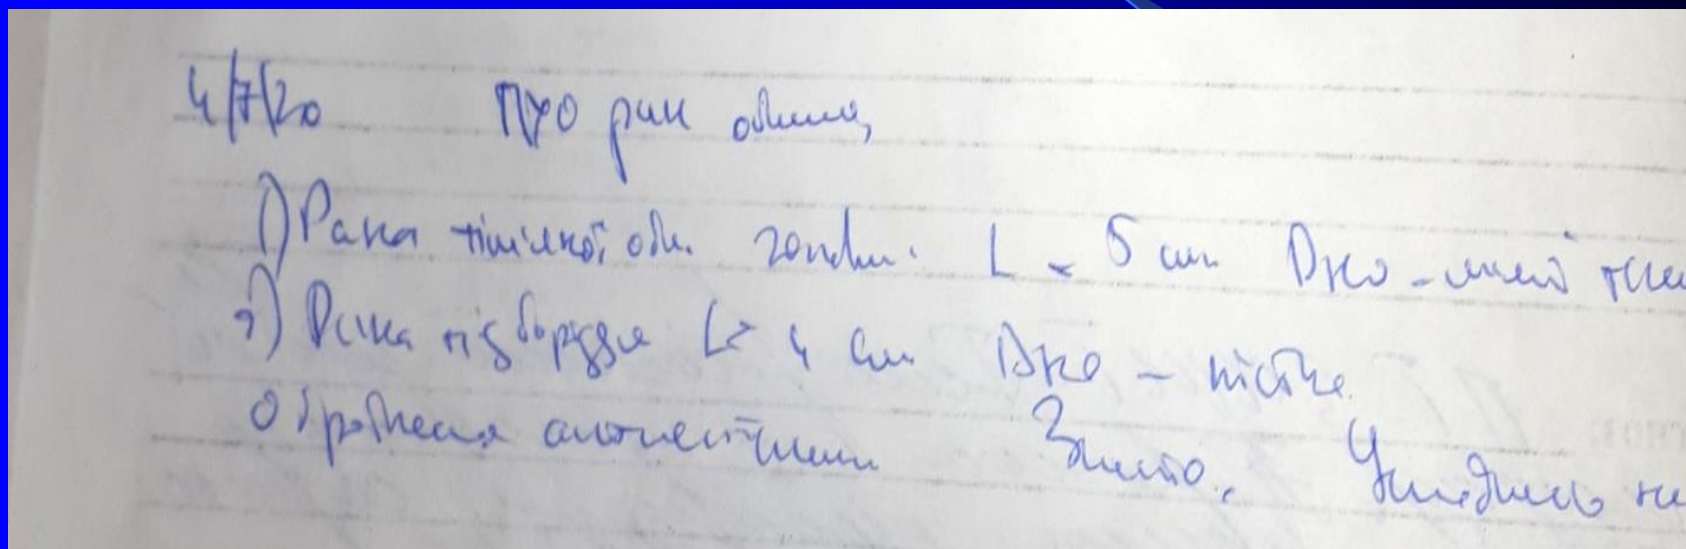 4/7/20 ПХО ран обличчя
1) Рана тім'яної обл. голови. L = 5 см Дно -
2) Рана підборіддя L = 4 см Дно - кістка.
Оброблена антисептиками Зашито.